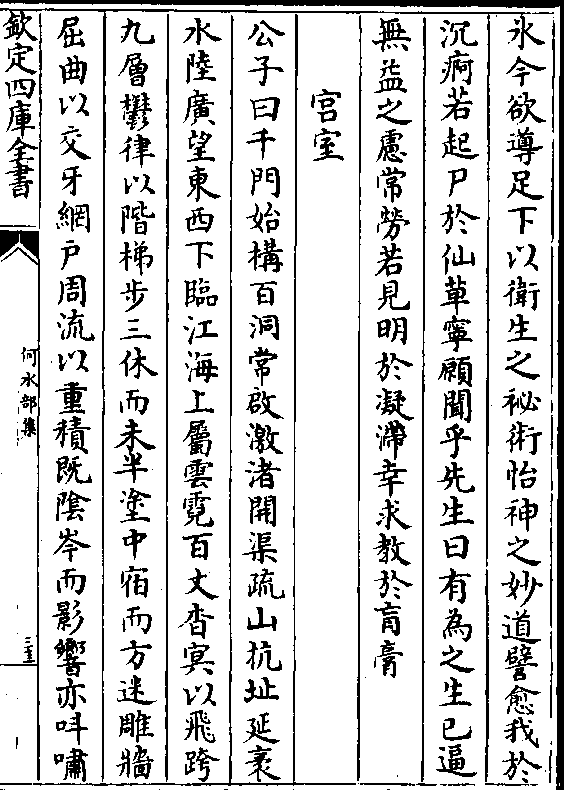 氷今欲導足下以衛生之祕術怡神之妙道譬愈我於
沉痾若起尸於仙草寧願聞乎先生曰有為之生已逼
無益之慮常勞若見明於凝滯幸求教於肓膏
宫室
公子曰千門始構百洞常啟激渚開渠疏山抗址延袤
水陸廣望東西下臨江海上屬雲霓百丈杳冥以飛跨
九層鬱律以階梯步三休而未半塗中宿而方迷雕牆
屈曲以交牙網户周流以重積既陰岑而影響亦呌嘯
欽定四庫全書
何水部集
三十三